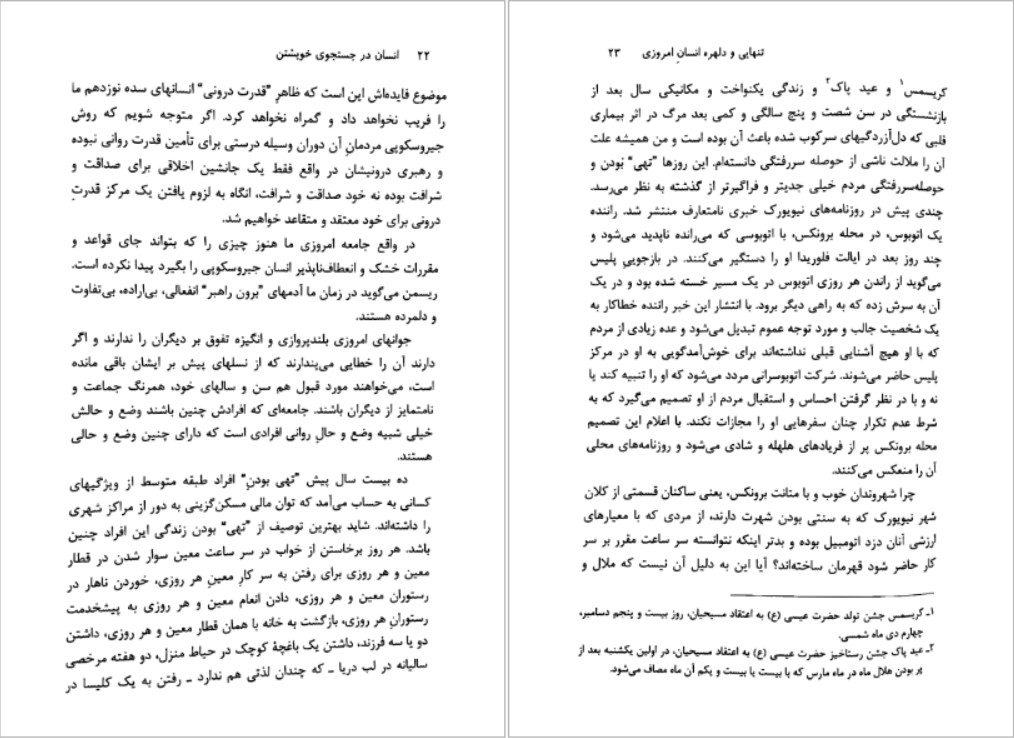 ۲۲ انسان در جستجوی خویشتن
موضوع فایده‌اش این است که ظاهرِ "قدرت درونی" انسانهای سده نوزدهم ما
را فریب نخواهد داد و گمراه نخواهد کرد. اگر متوجه شویم که روش
جیروسکوپی مردمانِ آن دوران وسیله درستی برای تأمین قدرت روانی نبوده
و رهبری درونیشان در واقع فقط یک جانشین اخلاقی برای صداقت و
شرافت بوده نه خود صداقت و شرافت، انگاه به لزوم یافتن یک مرکز قدرتِ
درونی برای خود معتقد و متقاعد خواهیم شد.
در واقع جامعه امروزی ما هنوز چیزی را که بتواند جای قواعد و
مقررات خشک و انعطاف‌ناپذیر انسان جیروسکوپی را بگیرد پیدا نکرده است.
ریسمن می‌گوید در زمان ما آدمهای "برون راهبر" انفعالی، بی‌اراده، بی‌تفاوت
و دلمرده هستند.
جوانهای امروزی بلندپروازی و انگیزه تفوق بر دیگران را ندارند و اگر
دارند آن را خطایی می‌پندارند که از نسلهای پیش بر ایشان باقی مانده
است، می‌خواهند مورد قبول هم سن و سالهای خود، همرنگ جماعت و
نامتمایز از دیگران باشند. جامعه‌ای که افرادش چنین باشند وضع و حالش
خیلی شبیه وضع و حالِ روانی افرادی است که دارای چنین وضع و حالی
هستند.
ده بیست سال پیش "تهی بودنِ" افراد طبقه متوسط از ویژگیهای
کسانی به حساب می‌آمد که توان مالی مسکن‌گزینی به دور از مراکز شهری
را داشته‌اند. شاید بهترین توصیف از "تهی" بودن زندگی این افراد چنین
باشد. هر روز برخاستن از خواب در سر ساعت معین سوار شدن در قطار
معین و هر روزی برای رفتن به سر کارِ معینِ هر روزی، خوردن ناهار در
رستوران معین و هر روزی، دادن انعام معین و هر روزی به پیشخدمت
رستورانِ هر روزی، بازگشت به خانه با همان قطار معین و هر روزی، داشتن
دو یا سه فرزند، داشتن یک باغچهٔ کوچک در حیاط منزل، دو هفته مرخصی
سالیانه در لب دریا ـ که چندان لذتی هم ندارد ـ رفتن به یک کلیسا در
تنهایی و دلهره انسانِ امروزی ۲۳
کریسمس۱ و عید پاک۲ و زندگی یکنواخت و مکانیکی سال بعد از
بازنشستگی در سن شصت و پنج سالگی و کمی بعد مرگ در اثر بیماری
قلبی که دل‌آزردگیهای سرکوب شده باعث آن بوده است و من همیشه علت
آن را ملالت ناشی از حوصله سررفتگی دانسته‌ام. این روزها "تهی" بُودن و
حوصله‌سررفتگی مردم خیلی جدیتر و فراگیرتر از گذشته به نظر می‌رسد.
چندی پیش در روزنامه‌های نیویورک خبری نامتعارف منتشر شد. راننده
یک اتوبوس، در محله برونکس، با اتوبوسی که می‌رانده ناپدید می‌شود و
چند روز بعد در ایالت فلوریدا او را دستگیر می‌کنند. در بازجوییِ پلیس
می‌گوید از راندن هر روزی اتوبوس در یک مسیر خسته شده بود و در یک
آن به سرش زده که به راهی دیگر برود. با انتشار این خبر راننده خطاکار به
یک شخصیت جالب و مورد توجه عموم تبدیل می‌شود و عده زیادی از مردم
که با او هیچ آشنایی قبلی نداشته‌اند برای خوش‌آمدگویی به او در مرکز
پلیس حاضر می‌شوند. شرکت اتوبوسرانی مردد می‌شود که او را تنبیه کند یا
نه و با در نظر گرفتن احساس و استقبال مردم از او تصمیم می‌گیرد که به
شرط عدم تکرار چنان سفرهایی او را مجازات نکند. با اعلام این تصمیم
محله برونکس پر از فریادهای هلهله و شادی می‌شود و روزنامه‌های محلی
آن را منعکس می‌کنند.
چرا شهروندان خوب و با متانت برونکس، یعنی ساکنان قسمتی از کلان
شهر نیویورک که به سنتی بودن شهرت دارند، از مردی که با معیارهای
ارزشی آنان دزد اتومبیل بوده و بدتر اینکه نتوانسته سر ساعت مقرر بر سر
کار حاضر شود قهرمان ساخته‌اند؟ آیا این به دلیل آن نیست که ملال و
۱ـ کریسمس جشن تولد حضرت عیسی (ع) به اعتقاد مسیحیان، روز بیست و پنجم دسامبر،
چهارم دی ماه شمسی.
۲ـ عید پاک جشن رستاخیز حضرت عیسی (ع) به اعتقاد مسیحیان، در اولین یکشنبه بعد از
پر بودن هلال ماه در ماه مارس که با بیست یا بیست و یکم آن ماه مصاف می‌شود.